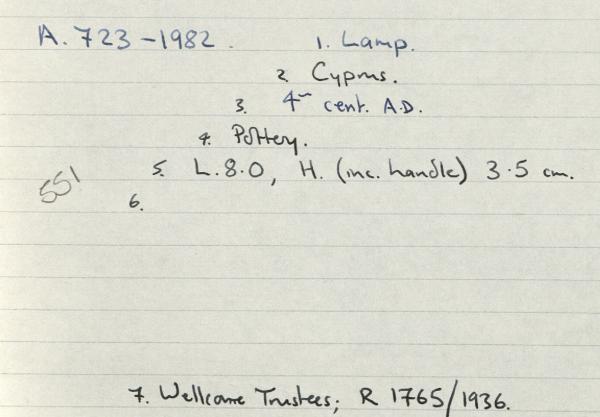 A. 723-1982. 1. Lamp.
2. Cyprus.
3. 4th cent. A.D.
4. Pottery.
5. L. 8.0, H. (inc. handle) 3.5 cm.
551
6.
7. Wellcome Trustees; R 1765/1936.